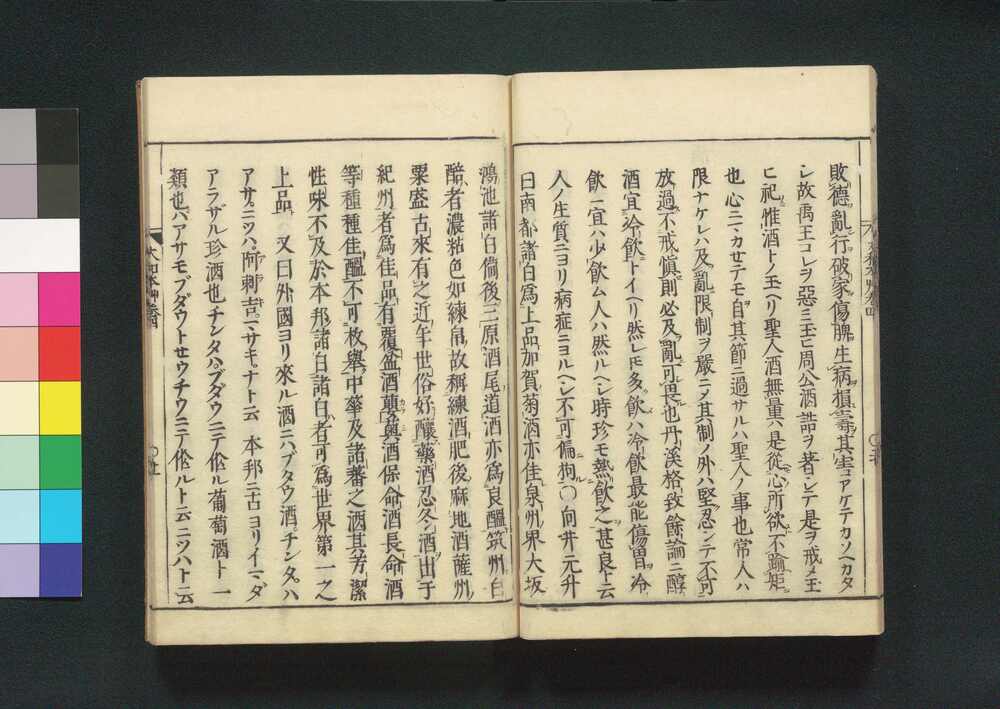 敗德亂行破家傷脾生病損壽其害アケテカソヘカタ
シ故禹王コレヲ惡ミ玉ヒ周公酒誥ヲ著シテ是ヲ戒メ玉
ヒ祀惟酒トノ玉ヘリ聖人酒無量只是從心所欲不踰矩
也心ニマカセテモ自其節ニ過サルハ聖人ノ事也常人ハ
限ナケレハ及亂限制ヲ嚴ニメ其制ノ外ハ堅忍シテ不可
放過不戒愼則必及亂可畏也丹溪格致餘論ニ醇
酒宜冷飮トイヘリ然レ𪜈多ク飮ハ冷飮最能傷胃冷
飮ニ宜ハ少飮ム人ハ然ルヘシ時珍モ熱飮之甚良ト云
人ノ生質ニヨリ病症ニヨルヘシ不可偏狗○向井元升
曰南都諸白爲上品加賀菊酒亦佳泉州界大坂
鴻池諸白備後三原酒尾道酒亦爲良醞筑州白
醅者濃粘色如練帛故稱練酒肥後麻地酒薩州
粟盛古來有之近年世俗好釀藥酒忍冬酒出于
紀州者爲佳品有覆盆酒䓴萸酒保命酒長命酒
等種種佳醞不可枚舉中華及諸蕃之酒其芳潔
性味不及於本邦諸白諸白者可爲世界第一之
上品 又曰外國ヨリ來ル酒ニハブタウ酒チンタハ
アサニツハ阿刺吉マサキナト云 本邦ニ古ヨリイマダ
アラザル珍酒也チンタハブダウニテ作ル葡萄酒ト一
類也ハアサモブダウトせウチウニテ作ルト云ニツハト云
大和本草卷四